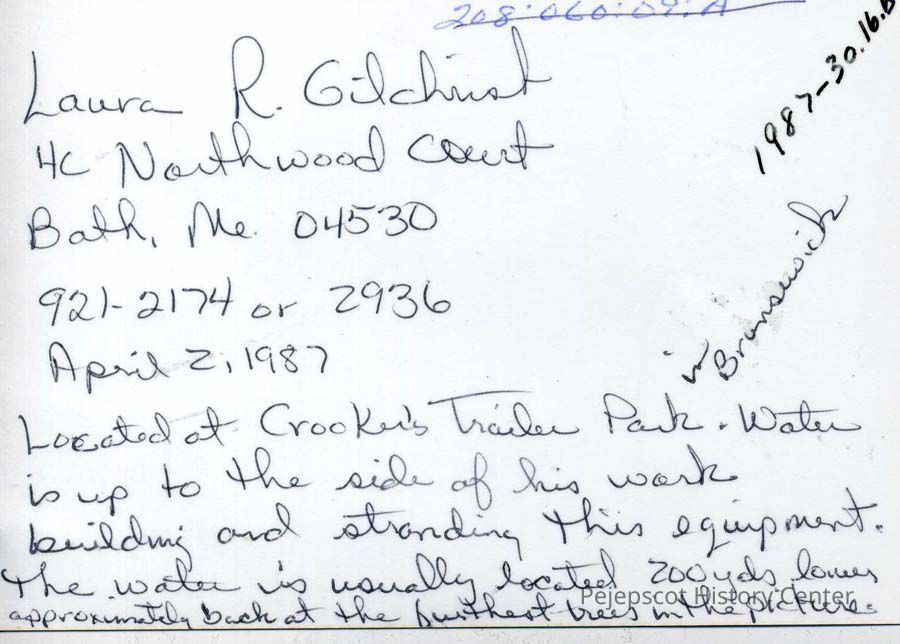 208.060.09.A
1987-30.16.B
Laura R. Gilchrist
4C Northwood Court
Bath, Me. 04530
921-2174 or 2936
April 2, 1987
in Brunswick
Located at Crooker's Trailer Park. Water
is up to the side of his work
building and stranding this equipment.
The water is usually located 200 yds lower
approximately back at the furthest trees in the picture.
Pejepscot History Center